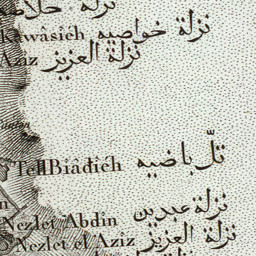 Kawâsich نزلة خواصيه
Aziz نزلة العزيز
Tell Biâdich تلّ بياضيه
Nezlet Abdin نزلة عبدين
Nezlet el Aziz نزلة العزيز